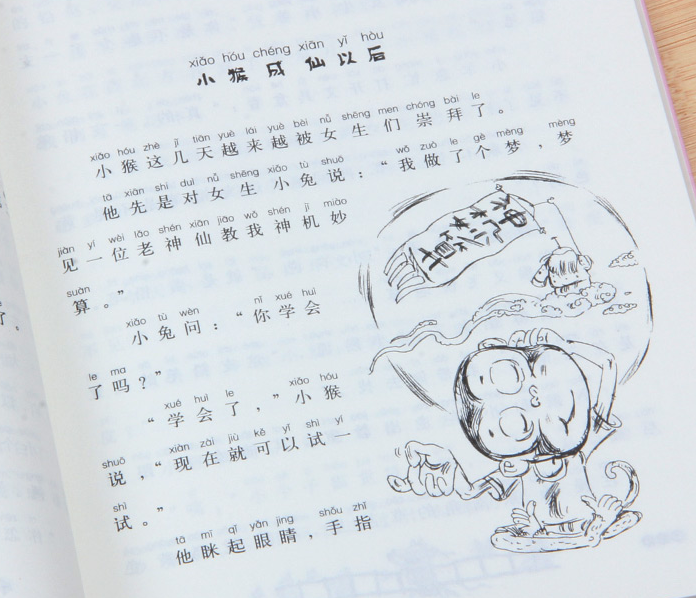 xiǎo hóu chéng xiān yǐ hòu
小猴成仙以后
xiǎo hóu zhè jǐ tiān yuè lái yuè bèi nǚ shēng men chóng bài le
小猴这几天越来越被女生们崇拜了。
tā xiān shì duì nǚ shēng xiǎo tù shuō wǒ zuò le gè mèng mèng
他先是对女生小兔说：“我做了个梦，梦
jiàn yí wèi lǎo shén xiān jiāo wǒ shén jī miào
见一位老神仙教我神机妙
suàn
算。”
xiǎo tù wèn nǐ xué huì
小兔问：“你学会
le ma
了吗？”
xué huì le xiǎo hóu
“学会了，”小猴
shuō xiàn zài jiù kě yǐ shì yí
说，“现在就可以试一
shì
试。”
tā mī qǐ yǎn jing shǒu zhǐ
他眯起眼睛，手指
神机妙算
了，